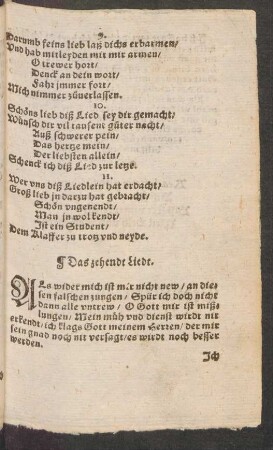 9.
Darumb feins lieb laß dichs erbarmen/
Vnd hab mitleyden mit mir armen/
O trewer hort/
Denck an dein wort/
Fahr jmmer fort/
Mich nimmer züuerlassen.
10.
Schöns lieb diß Lied sey dir gemacht/
Wünsch dir vil tausent güter nacht/
Auß schwerer pein/
Das hertze mein/
Der liebsten allein/
Schenck ich diß Lied zur letze.
11.
Wer vns diß Liedlein hat erdacht/
Groß lieb jn darzu hat gebracht/
Schön vngenendt/
Man jn wol kendt/
Ist ein Student/
Dem Klaffer zu trotz vnd neyde.
¶ Das zehendt Liedt.
ALs wider mich ist mir nicht new/ an die-
sen falschen zungen/ Spür ich doch nicht
dann alle vntrew/ O Gott mir ist miß-
lungen/ Mein müh vnd dienst wirdt nit
erkendt/ ich klags Gott meinem Herren/ der mir
sein gnad noch nit versagt/ es wirdt noch besser
werden.
Ich